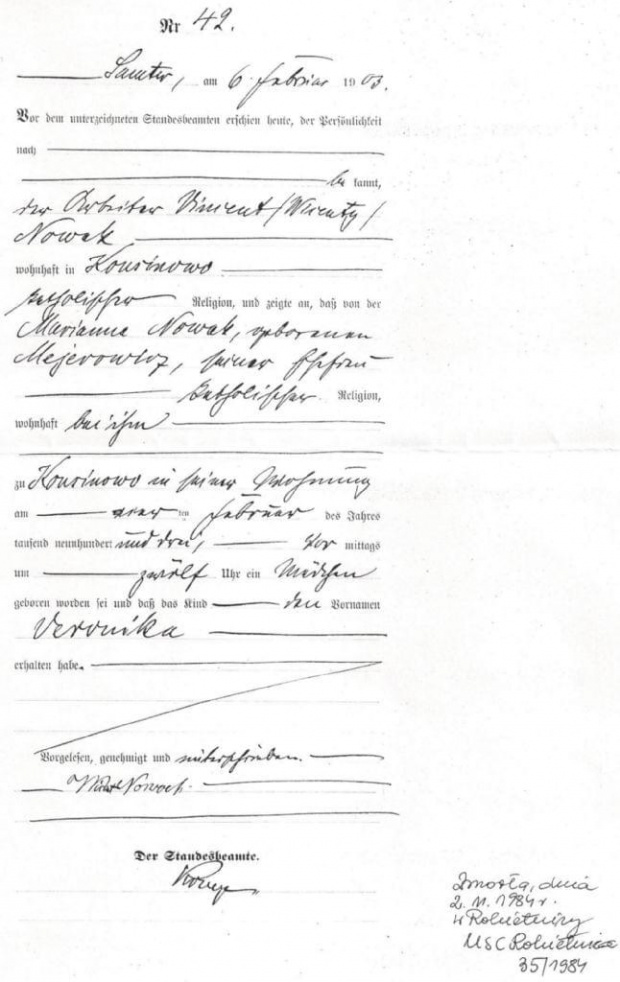 Nr 42.
Samter, am 6. Februar 1903.
Vor dem unterzeichneten Standesbeamten erschien heute, der Persönlichkeit
nach
be kannt,
der Arbeiter Vincent /Wicenty/
Nowak
wohnhaft in Konsinowo
katholischer Religion, und zeigte an, daß von der
Marianne Nowak, geborenen
Mejerowicz, seiner Ehefrau
katholischer Religion,
wohnhaft bei ihm
zu Konsinowo in seiner Wohnung
am ten Februar des Jahres
tausend neunhundert und drei, Vor mittags
um zwölf Uhr ein Mädchen
geboren worden sei und daß das Kind den Vornamen
Veronika
erhalten habe.
Vorgelesen, genehmigt und unterschrieben.
Nowak.
Der Standesbeamte.
Zmarła, dnia
2.11.1984 r.
w Rokietnicy
USC Rokietnica
35/1984